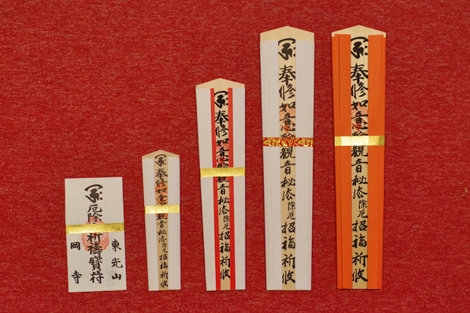 奉修如意輪觀音秘法除厄招福祈攸
奉修如意輪觀音秘法除厄招福祈攸
奉修如意輪觀音秘法除厄招福祈攸
奉修如意輪觀音秘法除厄招福祈攸
東光山
厄除祈禱寶符
岡寺